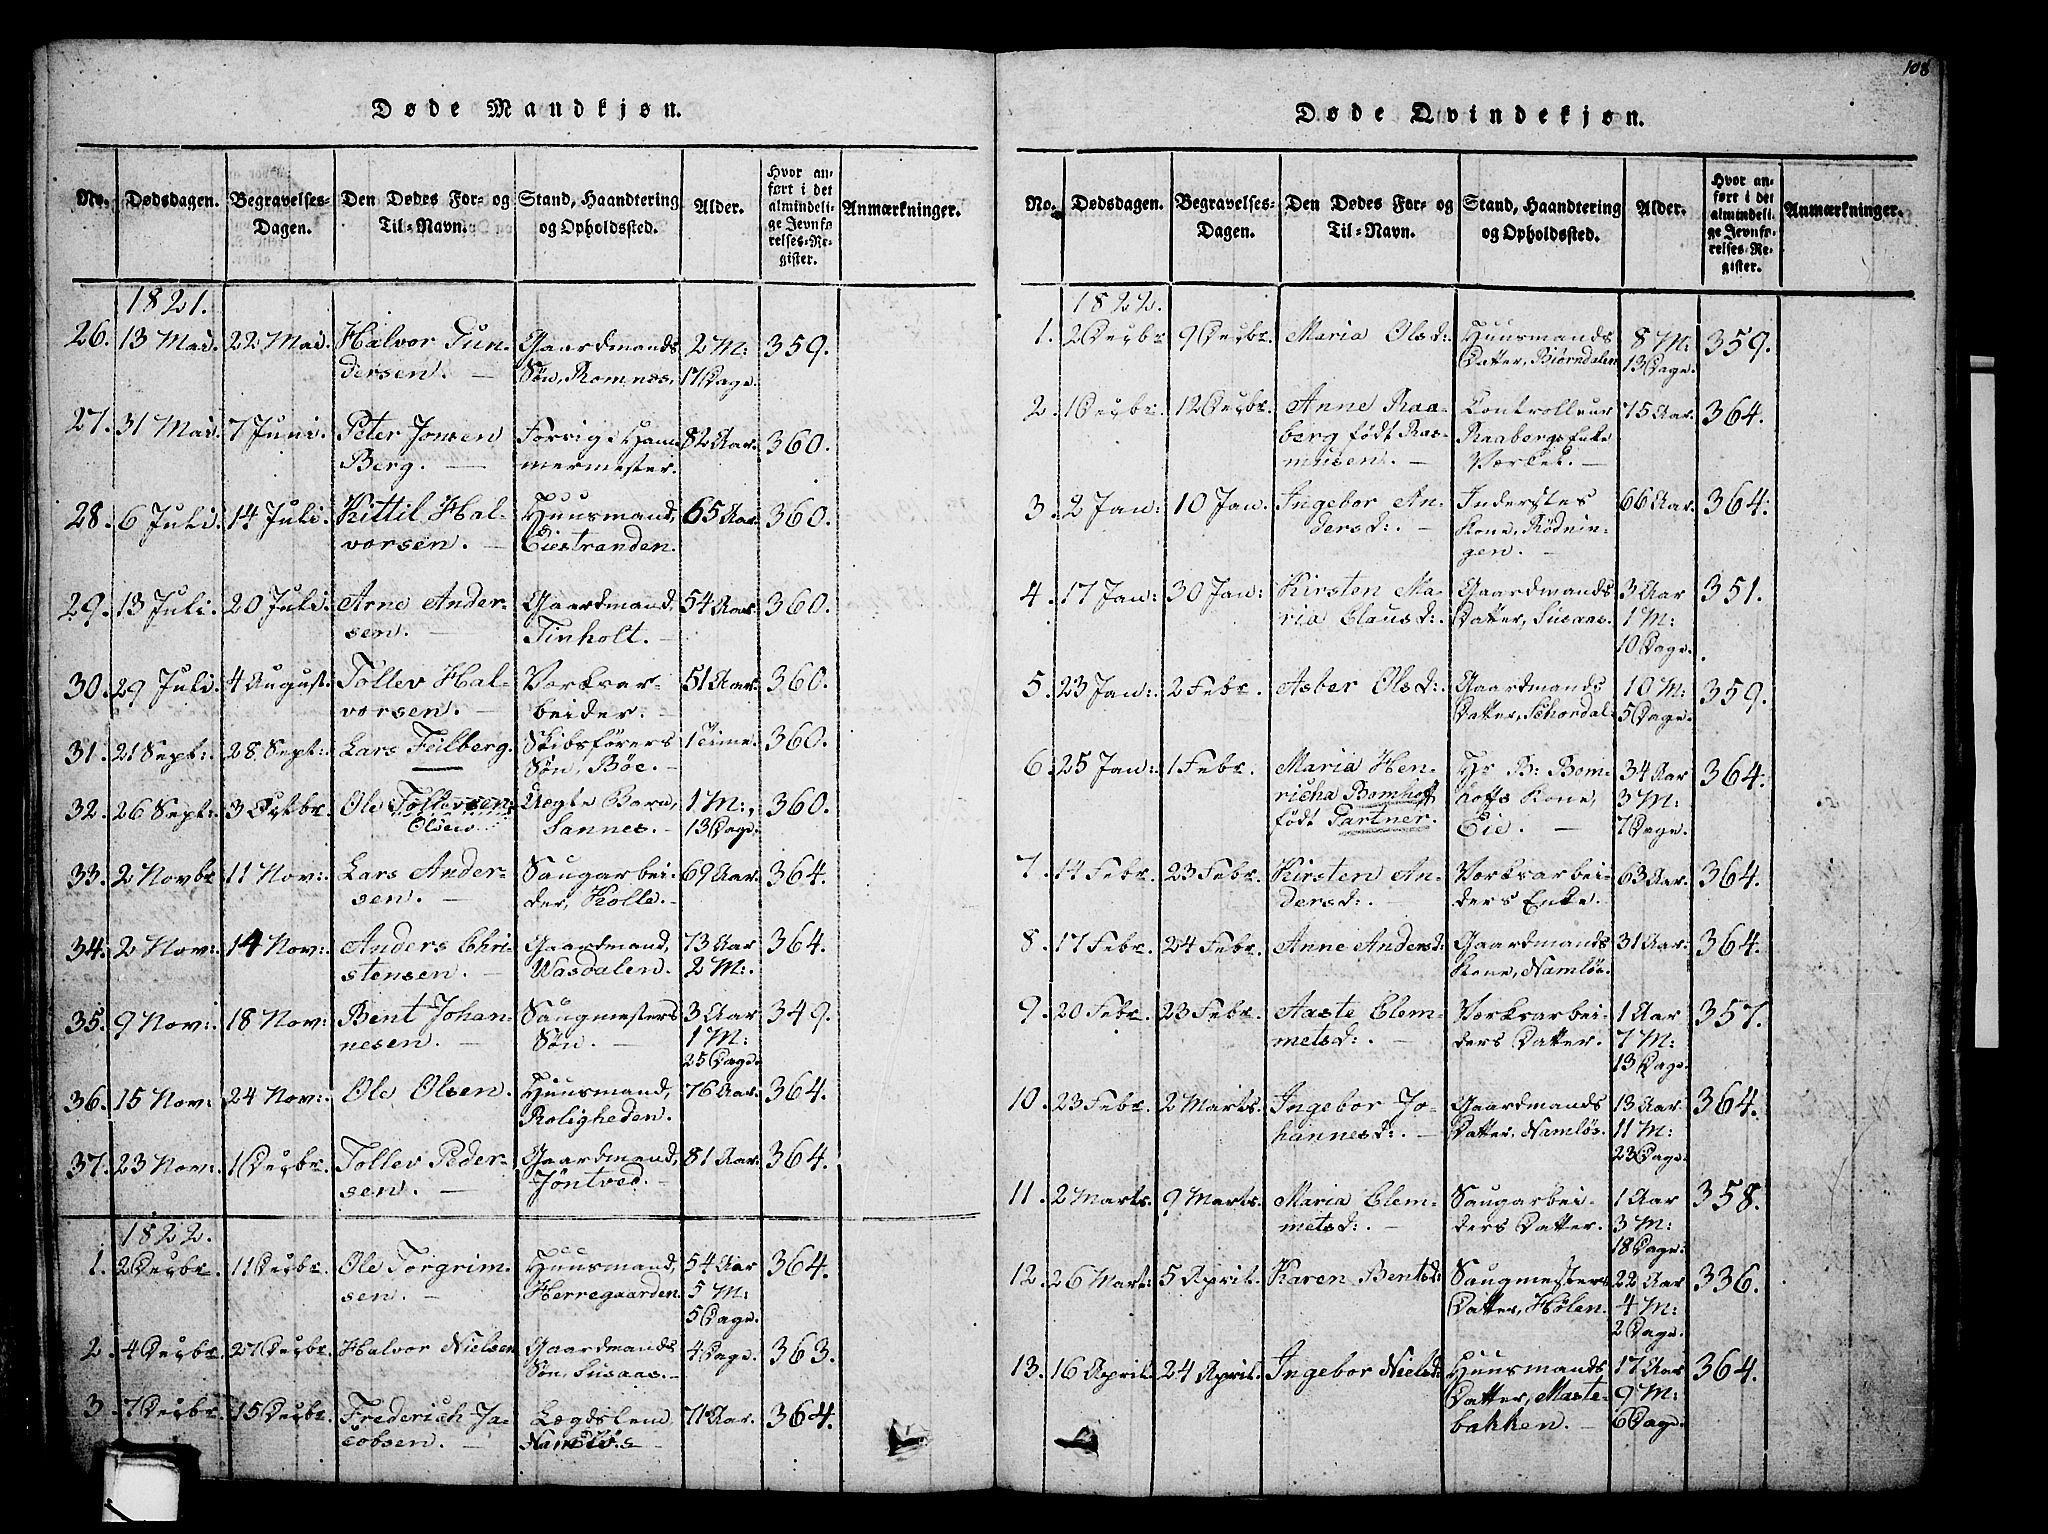 108
Døde Mandkjøn.
No. Dødsdagen. Begravelses-Dagen. Den Dødes For- og Til-Navn. Stand, Haandtering og Opholdssted. Alder. Hvor anført i det almindelige Jevnførelses-Register. Anmærkninger.
1821.
26. 13 Mai. 22 Mai. Halvor Gun- Gaardmands 2 M: 359.
dersen. Søn, Romnes. 17 Dage.
27. 31 Mai. 7 Juni. Peter Jonsen Forrige Ham- 82 Aar. 360.
Berg. mermester.
28. 6 Juli. 14 Juli. Kittil Hal- Huusmand, 65 Aar. 360.
vorsen. Eiestranden.
29. 13 Juli. 20 Juli. Arne Ander- Gaardmand, 54 Aar. 360.
sen. Tinholt.
30. 29 Juli. 4 August. Tollev Hal- Verksar- 51 Aar. 360.
vorsen. beider.
31. 21 Sept: 28 Sept: Lars Feilberg. Skibsførers 1 Time. 360.
Søn, Böe.
32. 26 Sept: 3 Octbr. Ole Tollevsen Uegte Barn, 1 M: 360.
Olsen Sannes. 13 Dage.
33. 2 Novbr 11 Nov: Lars Ander- Saugarbei- 69 Aar. 364.
sen. der, Kolle.
34. 2 Nov: 14 Nov: Anders Chri- Gaardmand, 73 Aar 364.
stensen. Wasdalen. 2 M:
35. 9 Nov: 18 Nov: Bent Johan- Saugmesters 3 Aar 349.
nesen. Søn. 1 M:
25 Dage.
36. 15 Nov: 24 Nov: Ole Olsen. Huusmand, 76 Aar. 364.
Roligheden.
37. 23 Nov: 1 Decbr. Tollev Peder- Gaardmand, 81 Aar. 364.
sen. Jöntved.
1822.
1. 2 Decbr. 11 Decbr. Ole Torgrim- Huusmand, 54 Aar 364.
sen. Herregaarden. 5 M:
5 Dage.
2. 4 Decbr. 27 Decbr. Halvor Nielsen Gaardmands 4 Dage. 363.
Søn, Susaas.
3. 7 Decbr. 15 Decbr. Frederich Ja- Lægdslem, 71 Aar. 364.
cobsen. Namløs
Døde Qvindekjøn.
No. Dødsdagen. Begravelses-Dagen. Den Dødes For- og Til-Navn. Stand, Haandtering og Opholdssted. Alder. Hvor anført i det almindelige Jevnførelses-Register. Anmærkninger.
1822.
1. 2 Decbr 9 Decbr. Maria Olsd: Huusmands 8 M: 359.
Datter, Biörndalen 13 Dage.
2. 1 Decbr. 12 Decbr. Anne Raa- Controlleur 75 Aar. 364.
berg født Ras- Raabergs Enke
musen. Værket.
3. 2 Jan: 10 Jan: Ingebor An- Inderstes 66 Aar. 364.
dersd: Kone, Rødnin-
gen.
4. 17 Jan: 30 Jan: Kirsten Ma- Gaardmands 3 Aar 351.
ria Clausd: Datter, Susaas. 1 M:
10 Dage.
5. 23 Jan: 2 Febr. Asber Olsd: Gaardmands 10 M: 359.
Datter, Schordal 5 Dage.
6. 25 Jan: 1 Febr. Maria Hen- Hr B: Bom- 34 Aar 364.
richa Bomhoff hoffs Kone, 3 M:
født Gartner. Eie. 7 Dage.
7. 14 Febr. 23 Febr. Kirsten An- Verksarbei- 63 Aar. 364.
dersd: ders Enke.
8. 17 Febr. 24 Febr. Anne Andersd: Gaardmands 31 Aar. 364.
Kone, Namløs.
9. 20 Febr. 23 Febr. Aaste Clem- Verksarbei- 1 Aar 357.
metsd: ders Datter. 7 M:
13 Dage
10. 23 Febr. 2 Marts. Ingebor Jo- Gaardmands 13 Aar. 364.
hannesd: Datter, Namløs. 11 M:
23 Dage.
11. 2 Marts. 9 Marts. Maria Clem- Saugarbei- 1 Aar 358.
metsd: ders Datter. 3 M:
18 Dage.
12. 26 Mart: 5 April. Karen Bentsd: Saugmesters 22 Aar 336.
Datter, Hølen. 4 M:
2 Dage.
13. 16 April. 24 April. Ingebor Nielsd: Huusmands 17 Aar 364.
Datter, Maste- 9 M:
bakken. 6 Dage.